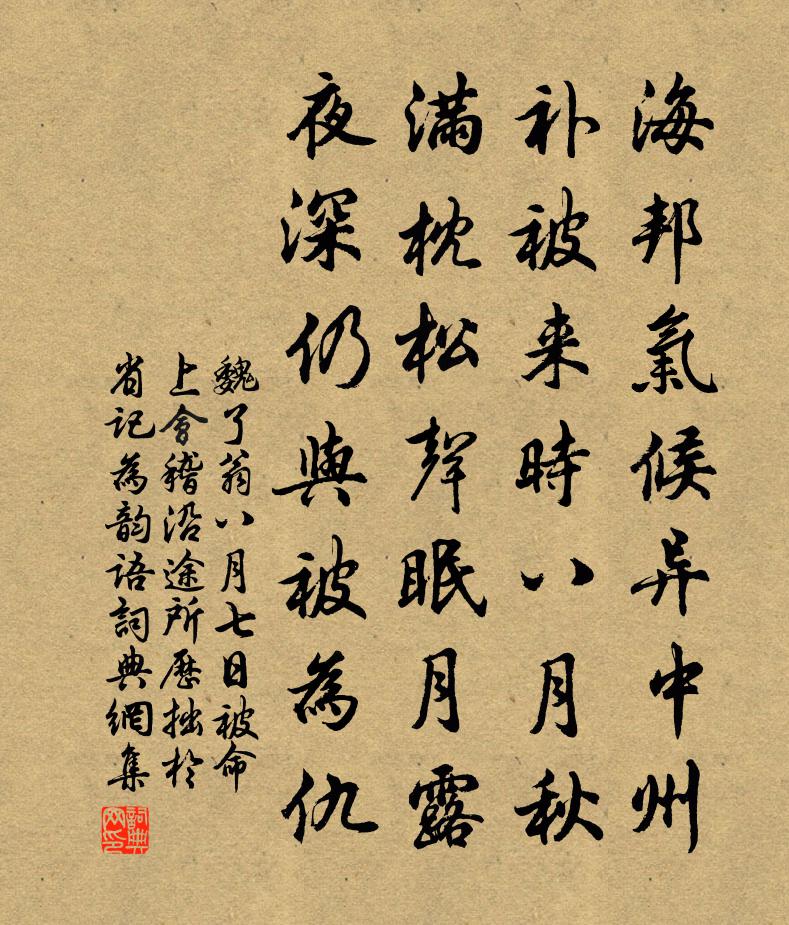 海邦氣候异中州
补被来時八月秋
满枕松聲眠月露
夜深仍與被為仇
魏了翁八月七日被命
上會稽沿途所歷拙於
省記為韵語詞典網集
詞典网印